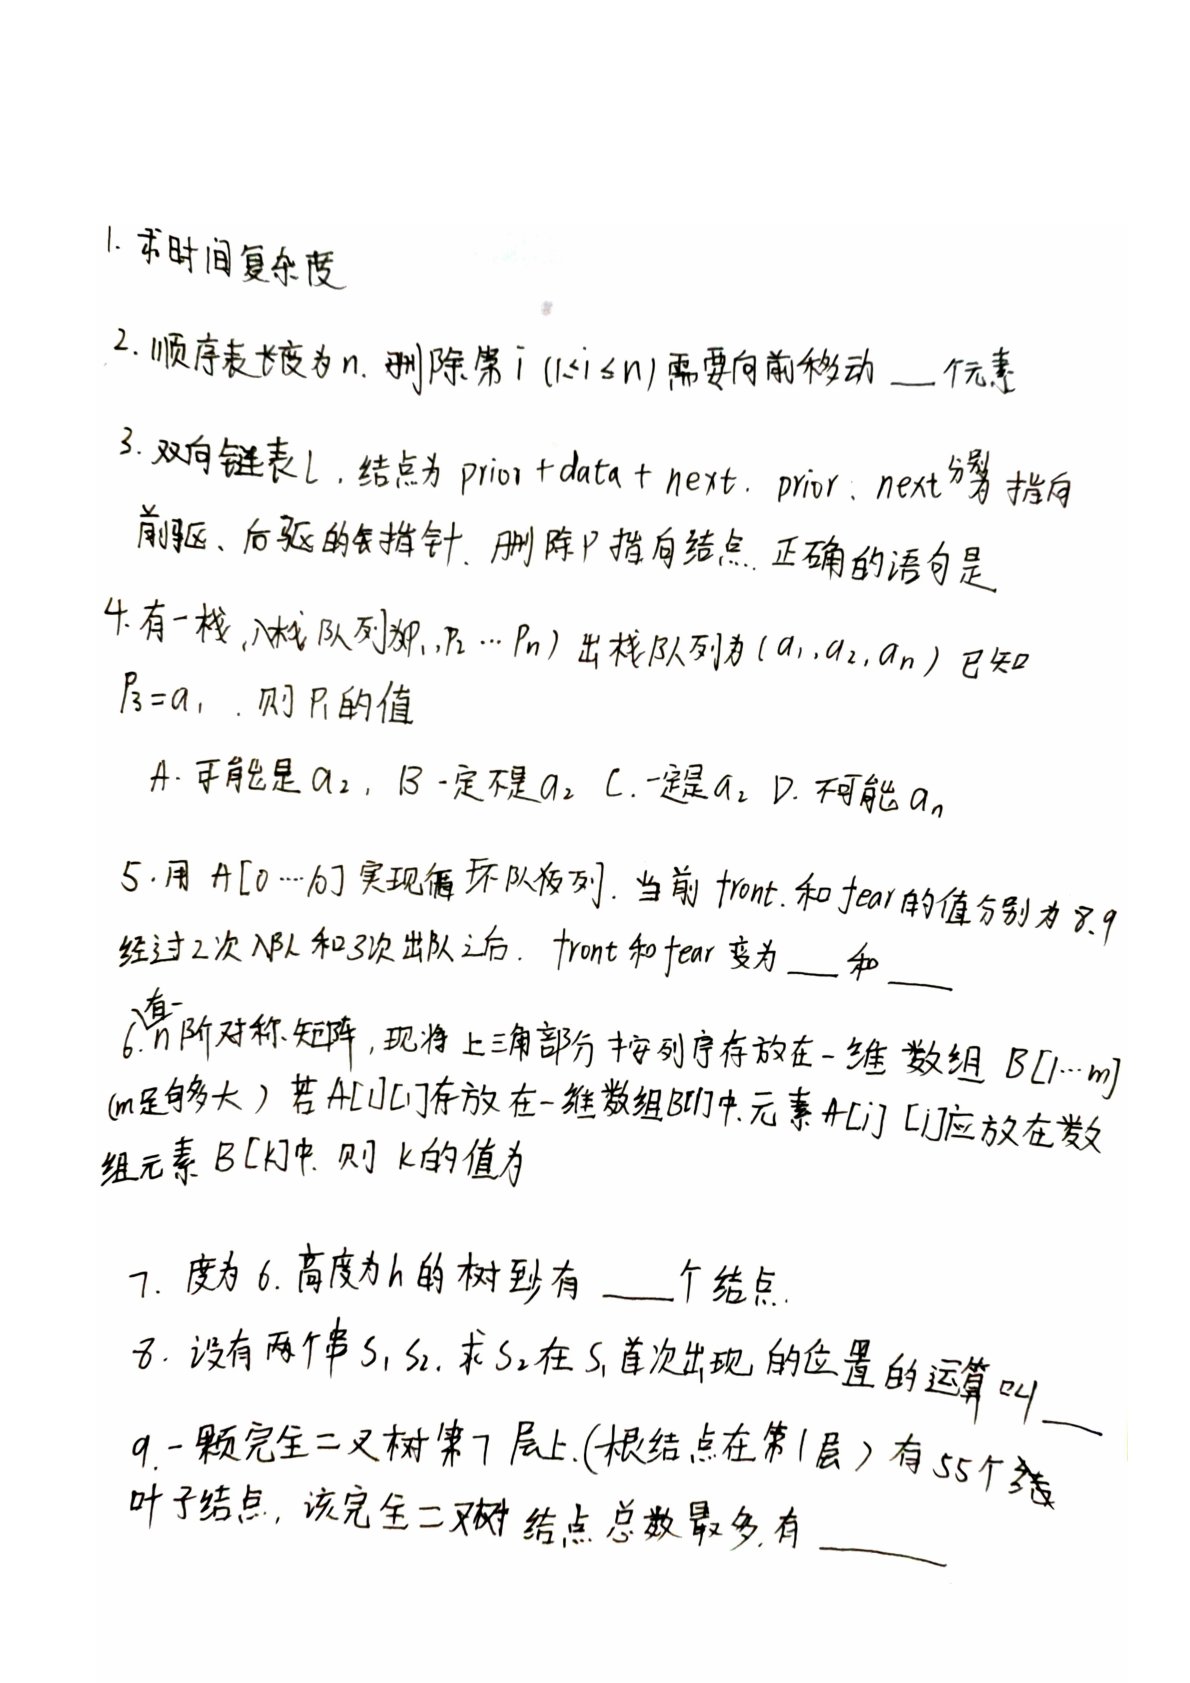 1. 求时间复杂度
2. 顺序表长度为n. 删除第i (1≤i≤n) 需要向前移动 __ 个元素
3. 双向链表L, 结点为 prior + data + next. prior、next分别为指向
前驱、后驱的指针. 删除P指向结点. 正确的语句是
4. 有一栈, 入栈队列为P₁, P₂ … Pₙ) 出栈队列为 (a₁, a₂, aₙ) 已知
P₃=a₁ . 则P₁的值
A. 可能是a₂, B 一定不是a₂ C. 一定是a₂ D. 不可能aₙ
5. 用 A[0…10] 实现循环队列. 当前 front. 和 rear的值分别为 8.9
经过2次入队和3次出队之后. front和rear变为 __ 和 __
6. 有一n阶对称矩阵, 现将上三角部分按列序存放在一维数组 B[1…m]
(m足够多大) 若A[1][1]存放在一维数组B[1]中. 元素A[i] [j]应放在数
组元素B[k]中. 则 k的值为
7. 度为6. 高度为h的树至少有 __ 个结点.
8. 设有两个串S₁ S₂. 求S₂在S₁首次出现的位置的运算叫 __
9. 一颗完全二叉树第7层上. (根结点在第1层) 有55个
叶子结点, 该完全二叉树结点总数最多有 __